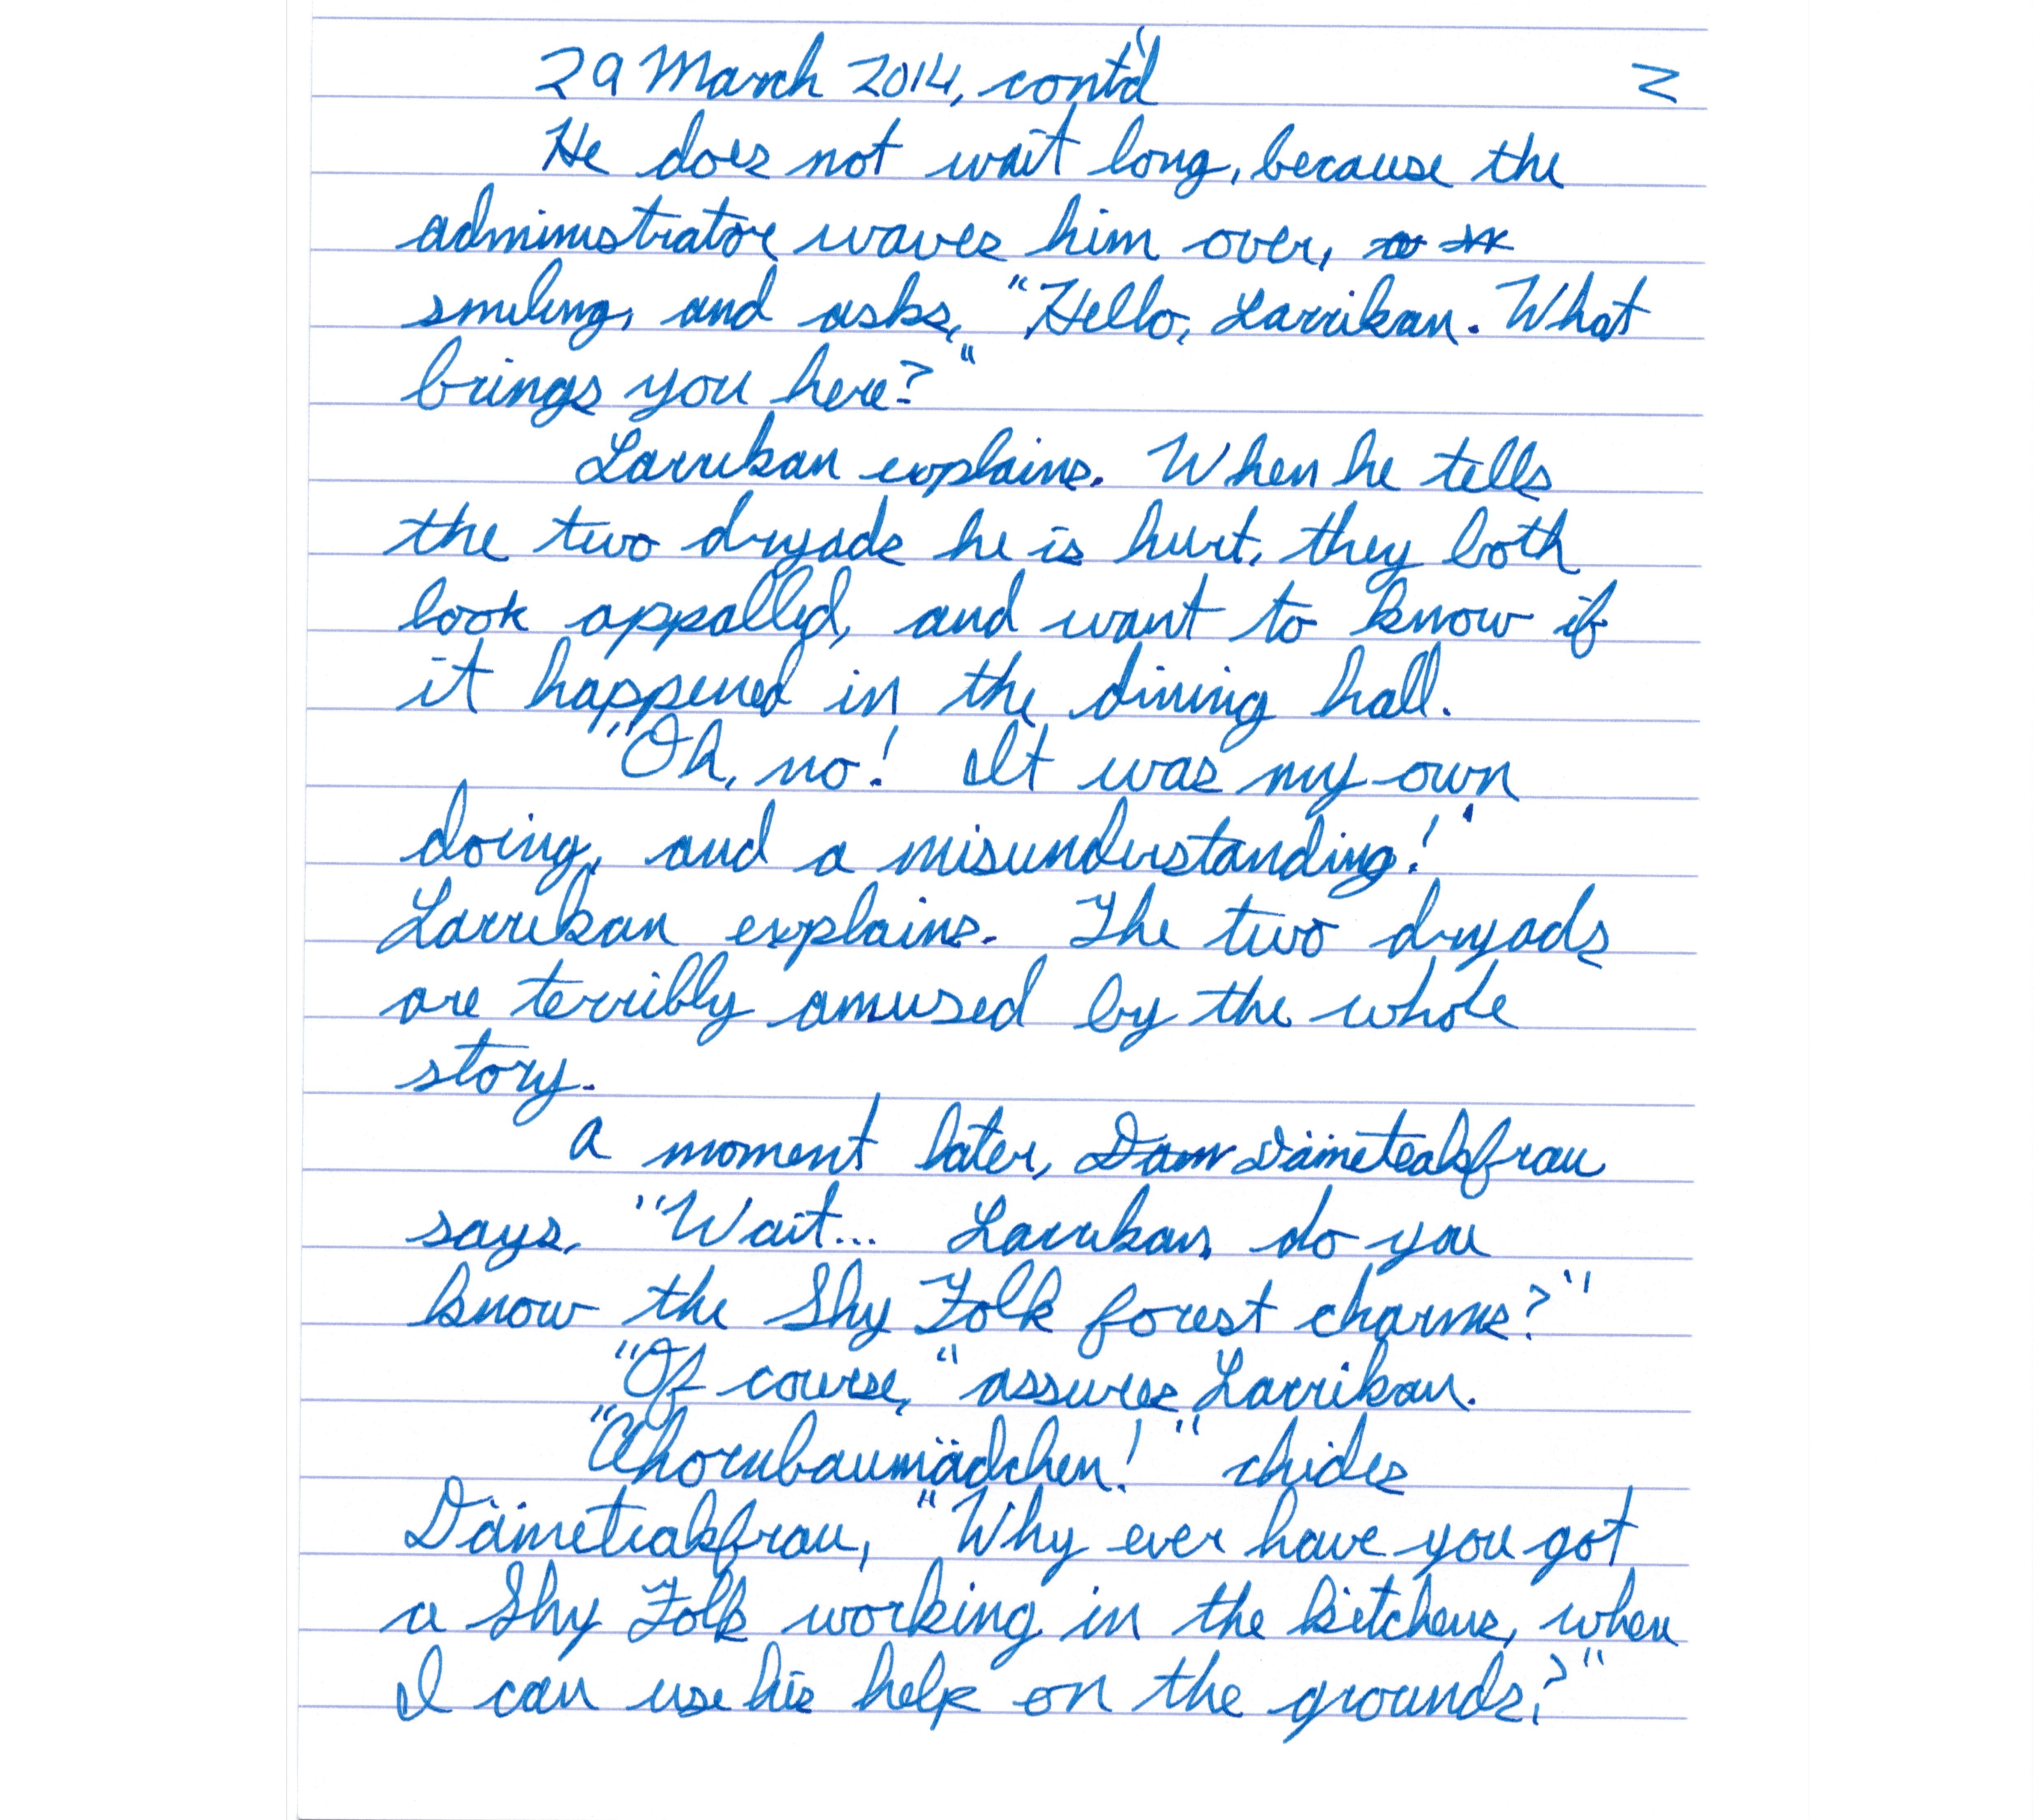 29 March 2014, cont'd 2
He does not wait long, because the
administrator waves him over,
smiling, and asks, "Hello, Larrikan. What
brings you here?"
Larrikan explains. When he tells
the two dryads he is hurt, they both
look appalled, and want to know if
it happened in the dining hall.
"Oh, no! It was my own
doing, and a misunderstanding!"
Larrikan explains. The two dryads
are terribly amused by the whole
story.
A moment later, Dam Dämeteakfrau
says, "Wait... Larrikan, do you
know the Shy Folk forest charms?"
"Of course," assures Larrikan.
"Ahornbaumädchen!" chides
Dämeteakfrau, "Why ever have you got
a Shy Folk working in the kitchens, when
I can use his help on the grounds?"